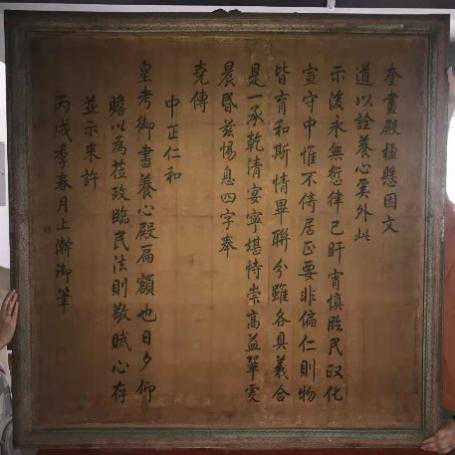 奎畫殿楹懸因文
道以詮養心奚外此
示後永無愆律己旰宵慎臨民政化
宣守中惟不倚居正要非偏仁則物
皆育和斯情畢聯分雖各具義合
是一承乾清宴寧堪恃崇高益單虔
晨昏茲惕息四字奉
堯傳
中正仁和
皇考御書養心殿扁額也日夕仰
瞻以為莅政臨民法則敬賦心存
並示來許
丙戌季春月上澣御筆